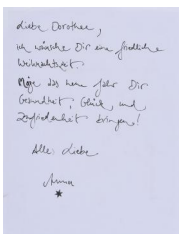 Liebe Dorothee,
ich wünsche Dir eine friedliche
Weihnachtszeit.
Möge das neue Jahr Dir
Gesundheit, Glück, und
Zufriedenheit bringen!
Alles Liebe
Anna